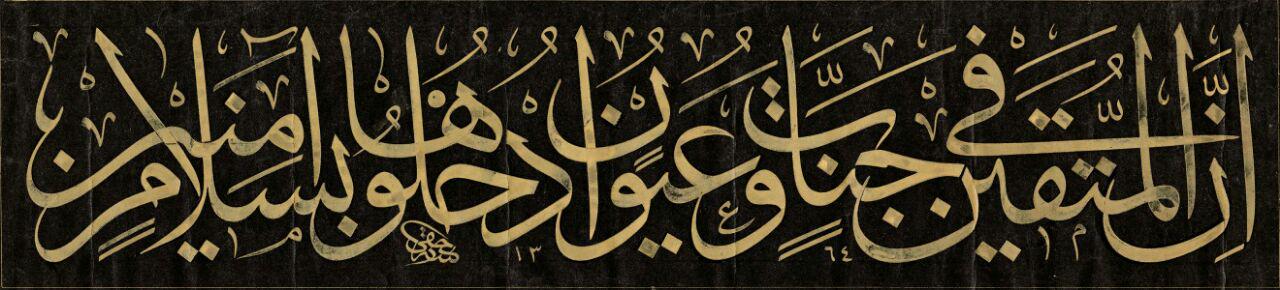 إِنَّ الْمُتَّقِينَ فِي جَنَّاتٍ وَعُيُونٍ ادْخُلُوهَا بِسَلَامٍ آمِنِينَ
١٣٦٤